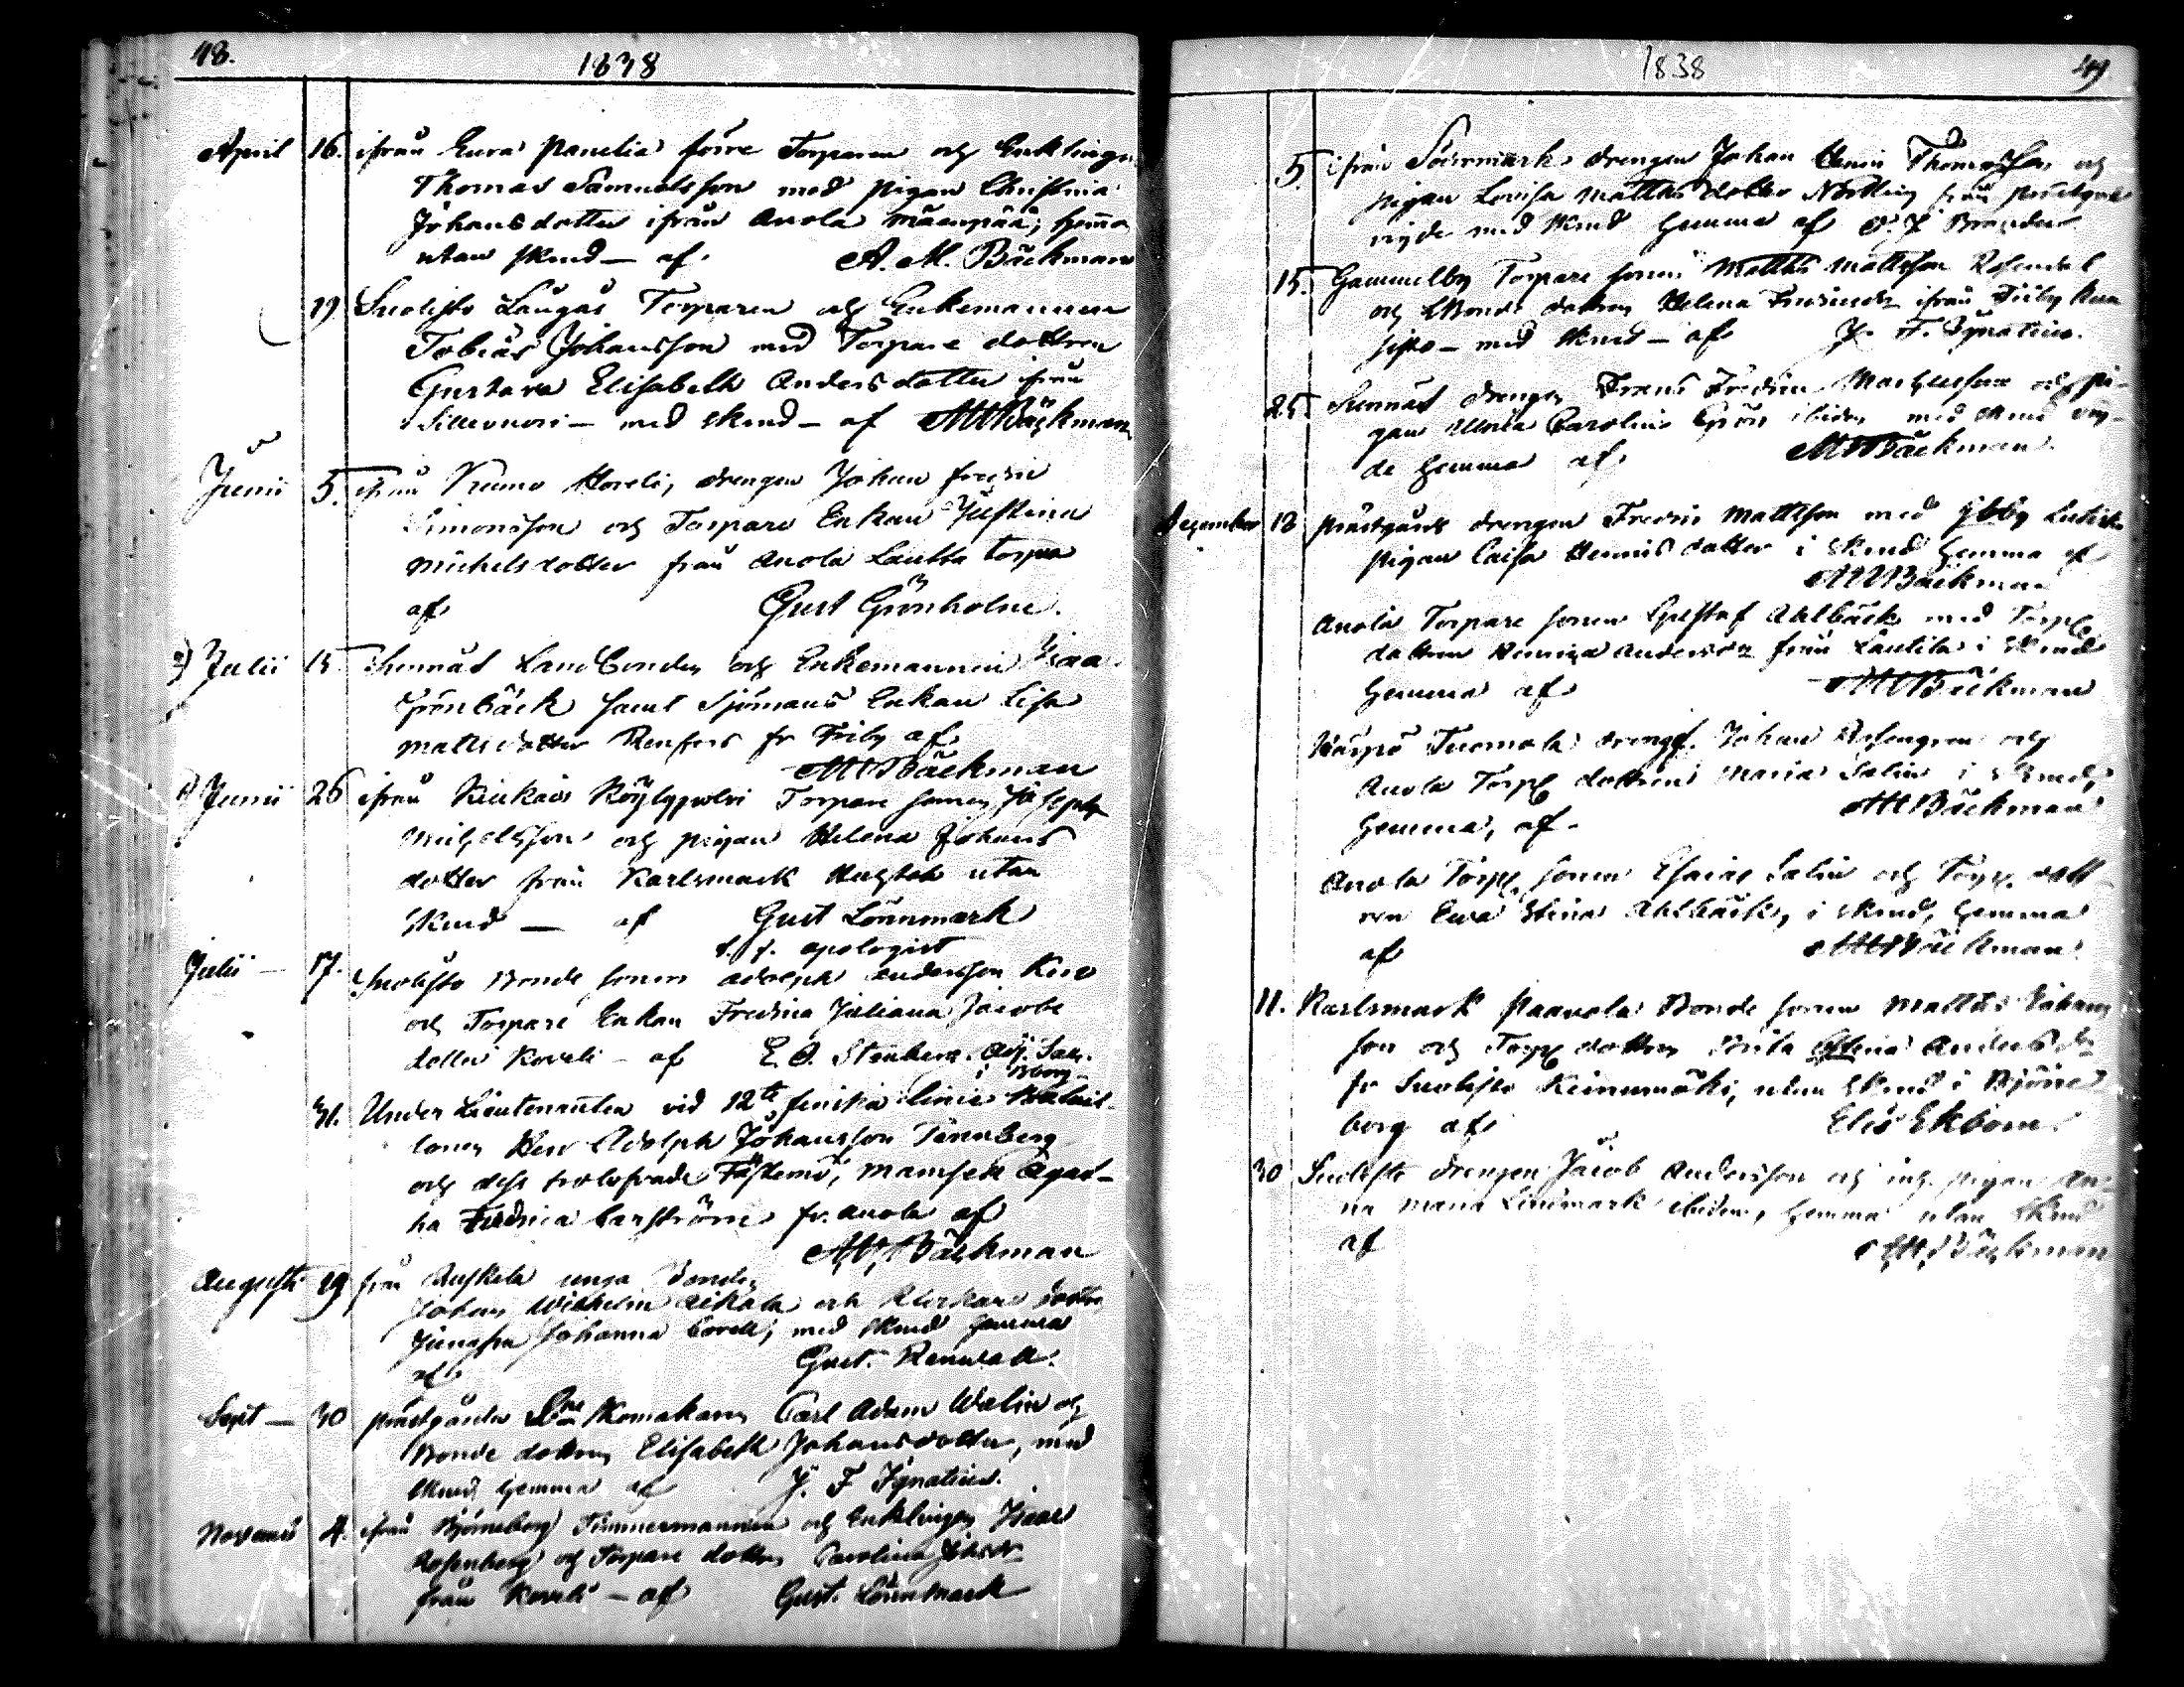 48.
1838
April 16. ifrån Eura Panelia förre Torparen och Enklingen
Thomas Samuelsson med pigan Christina
Johansdotter ifrån Anola Mäenpää, hemma
utan skrud — af A. M. Bäckman
19 Suolisto Laugas Torparen och Enkemannen
Tobias Johansson med Torpare dottren
Gustava Elisabeth Andersdotter ifrån
med skrud — af AMBäckman
Junii 5. ifrån Kumo Koveli, drengen Johan Fredric
Simonsson och Torpare Enkan Justina
Michelsdotter från Anola Lautta torpa
af Gust Grönholm.
2) Julii 15. Sunnäs Landbonden och Enkemannen Isaac
Grönbäck samt Sjömans Enkan Lisa
Mattsdotter Renfors fr Friby af
AMBäckman
1) Junii 26 ifrån Kiukais Torpare sonen Joseph
Michelsson och pigan Helena Johans
dotter från Karlsmark utan
skrud — af Gust Lönnmark
apologist
Julii — 17. Suolisto Bonde sonen Adolph Andersson
och Torpare Enkan Fredrica Juliana Jacobs
dotter Koveli — af E. A. Stenberg. Adj. Sac.
i Bborg
31. Under Lieutenanten vid 12te finska Linie Batail-
lonen Herr Adolph Johansson Tennberg
och dess trolofvade Fästemö, Mamsell Agat-
ha Fredrica Carström fr. Anola af
AMBäckman
Augusti 19 från unga Bonden
Johan Wilhelm och Klockare dottren
Jungfru Johanna med skrud hemma
af Gust. Renvall.
Sept — 30 prästgårds Skomakaren Carl Adam Walin och
Bonde dottren Elisabeth Johansdotter, med
skrud hemma af J. F. Ignatius.
Novemb 4. ifrån Björneborg Timmermannen och Enklingen Isaac
Rosenberg och Torpare dottren Carolina
från Koveli — af Gust. Lönnmark
1838
49
5. ifrån Södermark drengen Johan Thomasson och
pigan Lovisa Mattsdotter Nordling från prästgård
vigde med skrud hemma af
15. Gammelby Torpare sonen Matths Mattsson Rosendal
och Bonde dottren Helena ifrån Friby
med skrud — af J. F. Ignatius.
25. Sunnäs drengen Frans Fredric och pi-
gan Ulrica Carolina ibidem med skrud vig-
de hemma af AMBäckman
December 13 prästgårds drengen Fredric Mattsson med
pigan Caisa Henricsdotter i skrud hemma af
AMBäckman
Anola Torpare sonen Gustaf Ahlbäck med Torp.
dottren från Lautila i skrud
hemma af AMBäckman
Tuomola dreng. Johan Rosengren och
Anola Torp. dottren Maria Salin i skrud,
hemma, af AMBäckman
Anola Torp. sonen Esaias Salin och Torp. dott
ren Ewa Stina Ahlbäck, i skrud, hemma
af AMBäckman
11. Karlsmark Paavola Bonde sonen Matths Johans
son och Torp. dottren Brita Stina Anders dr
fr Suolisto Keinumäki, utan skrud i Björne
borg af Elis Ekbom.
30 Suolisto drengen Jacob Andersson och inh. pigan An
na Maria Lindmark ibidem, hemma utan skrud
af AMBäckman